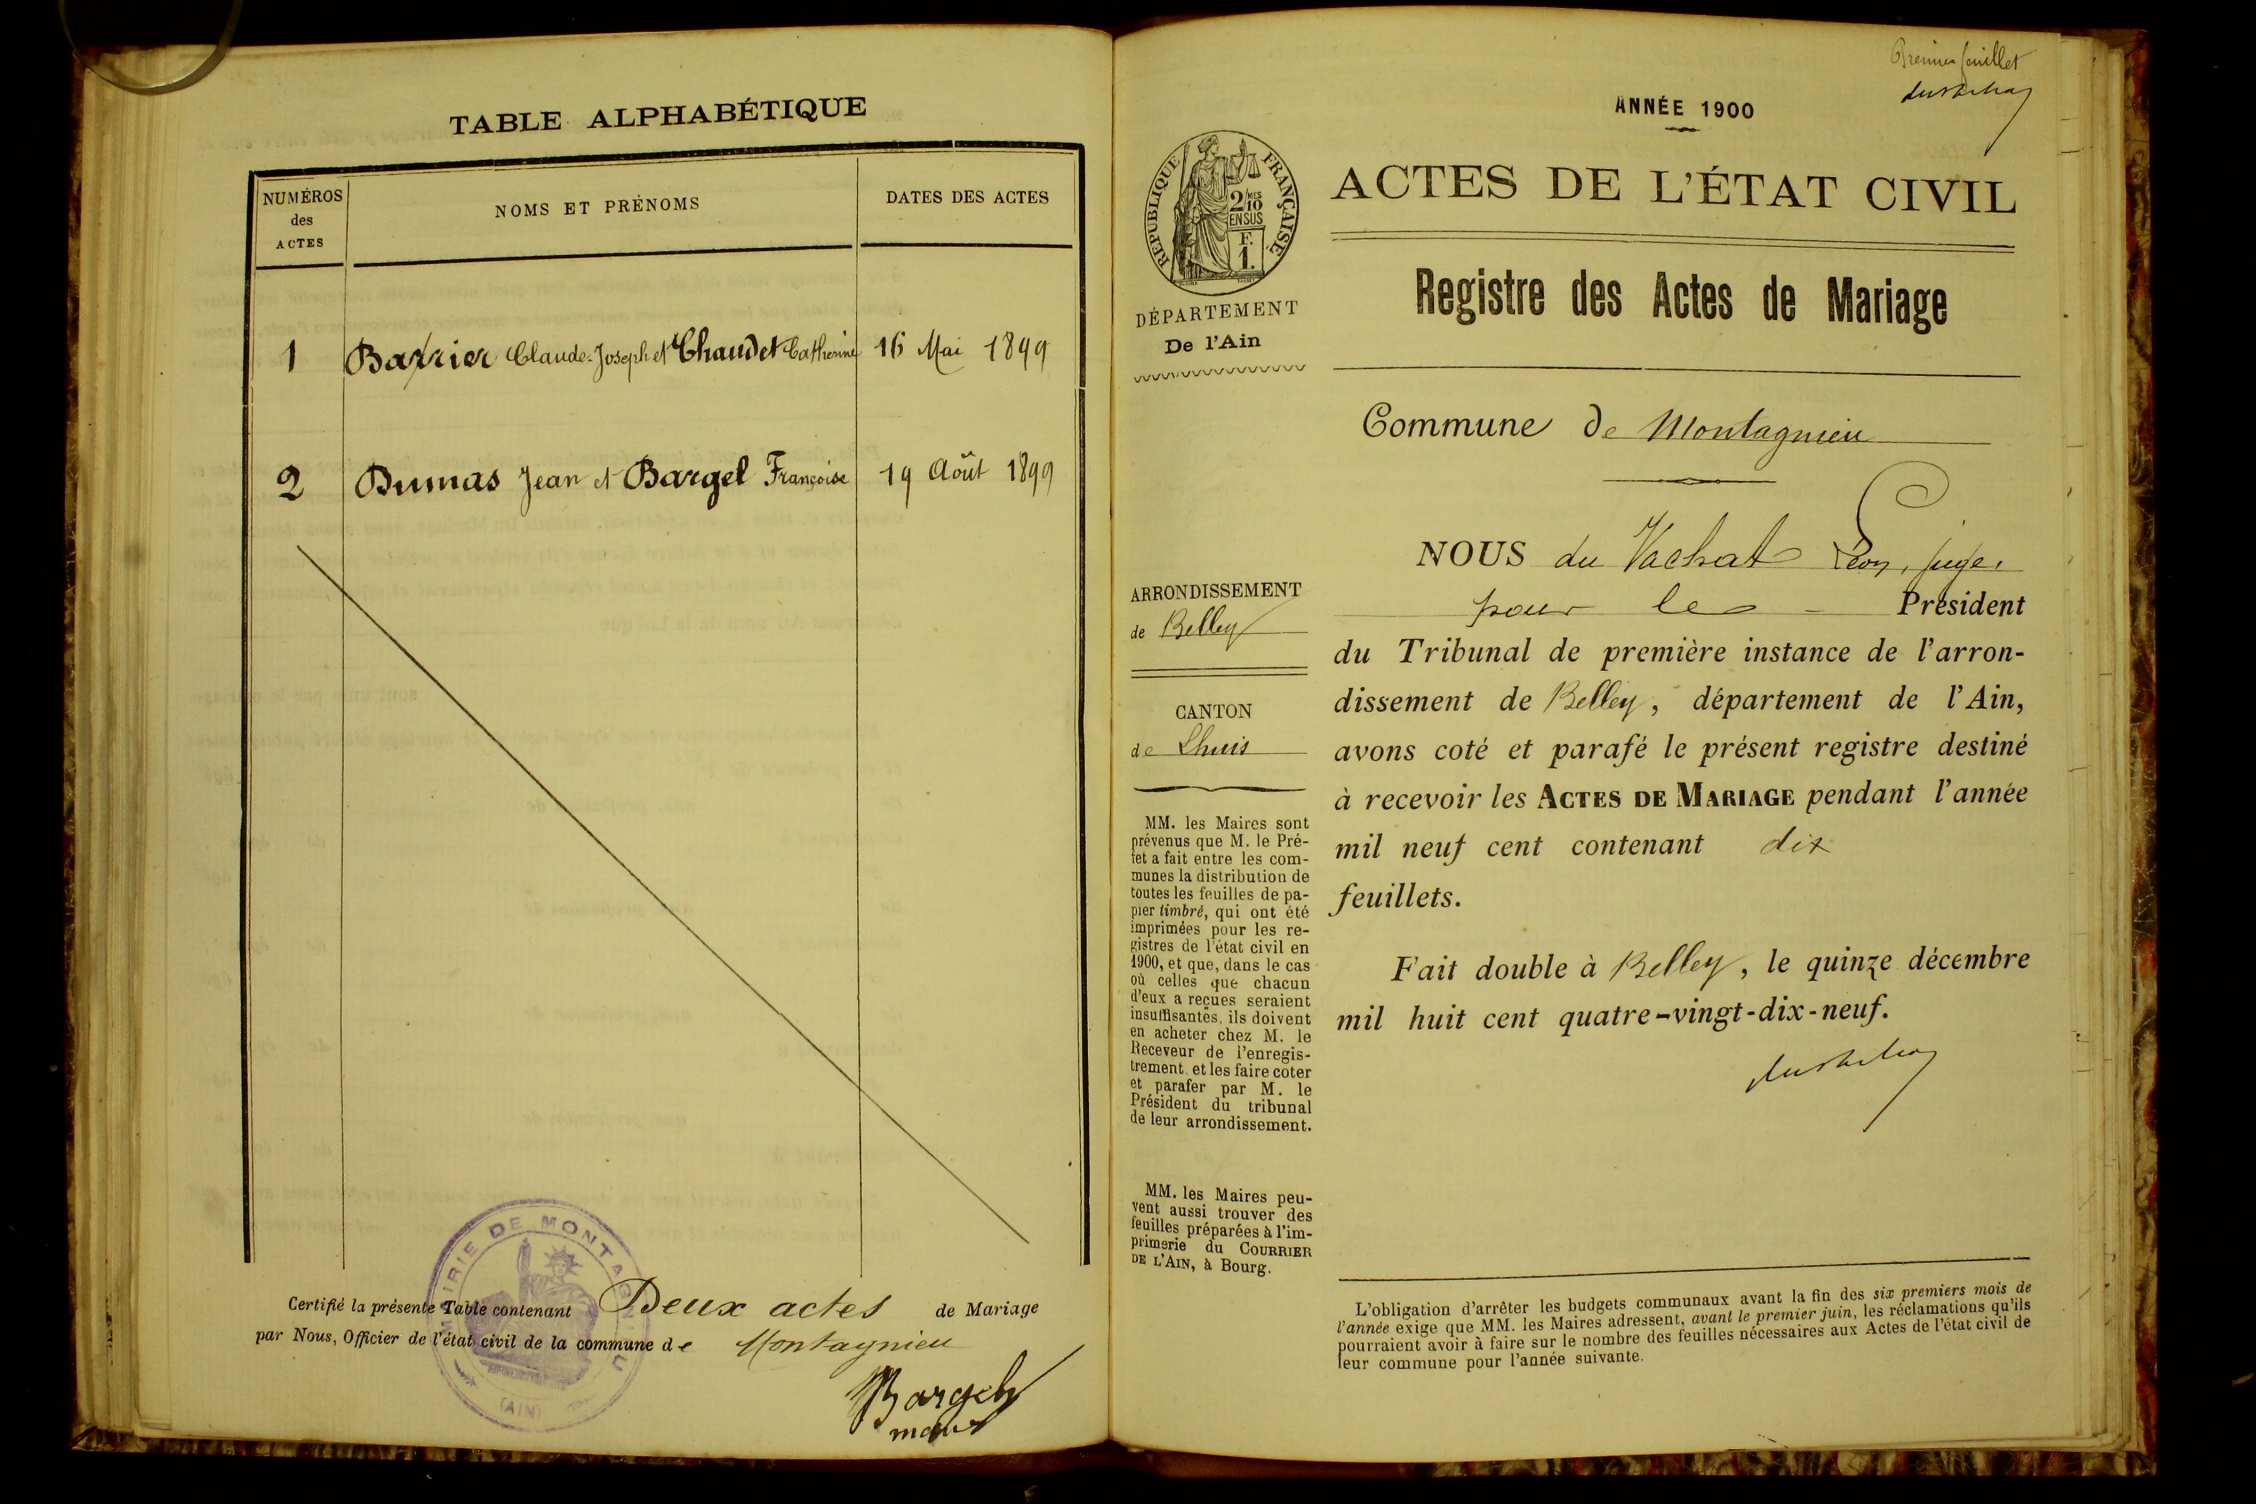 TABLE ALPHABÉTIQUE
NUMÉROS des ACTES
NOMS ET PRÉNOMS
DATES DES ACTES
1 Barrier Claude-Joseph et Chaudet Catherine 16 Mai 1899
2 Dumas Jean et Bargel Françoise 19 Août 1899
MAIRIE DE MONTAGNIEU
(AIN)
Certifié la présente Table contenant Deux actes de Mariage
par Nous, Officier de l'état civil de la commune de Montagnieu
Bargel
maire
Premier feuillet
ANNÉE 1900
RÉPUBLIQUE FRANÇAISE
2/10 MES
EN SUS
F.
1.
DÉPARTEMENT
De l'Ain
ACTES DE L'ÉTAT CIVIL
Registre des Actes de Mariage
Commune de Montagnieu
ARRONDISSEMENT
de Belley
CANTON
de Lhuis
MM. les Maires sont
prévenus que M. le Pré-
fet a fait entre les com-
munes la distribution de
toutes les feuilles de pa-
pier timbré, qui ont été
imprimées pour les re-
gistres de l'état civil en
1900, et que, dans le cas
où celles que chacun
d'eux a reçues seraient
insuffisantes, ils doivent
en acheter chez M. le
Receveur de l'enregis-
trement et les faire coter
et parafer par M. le
Président du tribunal
de leur arrondissement.
MM. les Maires peu-
vent aussi trouver des
feuilles préparées à l'im-
primerie du COURRIER
DE L'AIN, à Bourg.
NOUS du Vachat Léon, juge,
pour le Président
du Tribunal de première instance de l'arron-
dissement de Belley, département de l'Ain,
avons coté et parafé le présent registre destiné
à recevoir les ACTES DE MARIAGE pendant l'année
mil neuf cent contenant dix
feuillets.
Fait double à Belley, le quinze décembre
mil huit cent quatre-vingt-dix-neuf.
L'obligation d'arrêter les budgets communaux avant la fin des six premiers mois de
l'année exige que MM. les Maires adressent, avant le premier juin, les réclamations qu'ils
pourraient avoir à faire sur le nombre des feuilles nécessaires aux Actes de l'état civil de
leur commune pour l'année suivante.